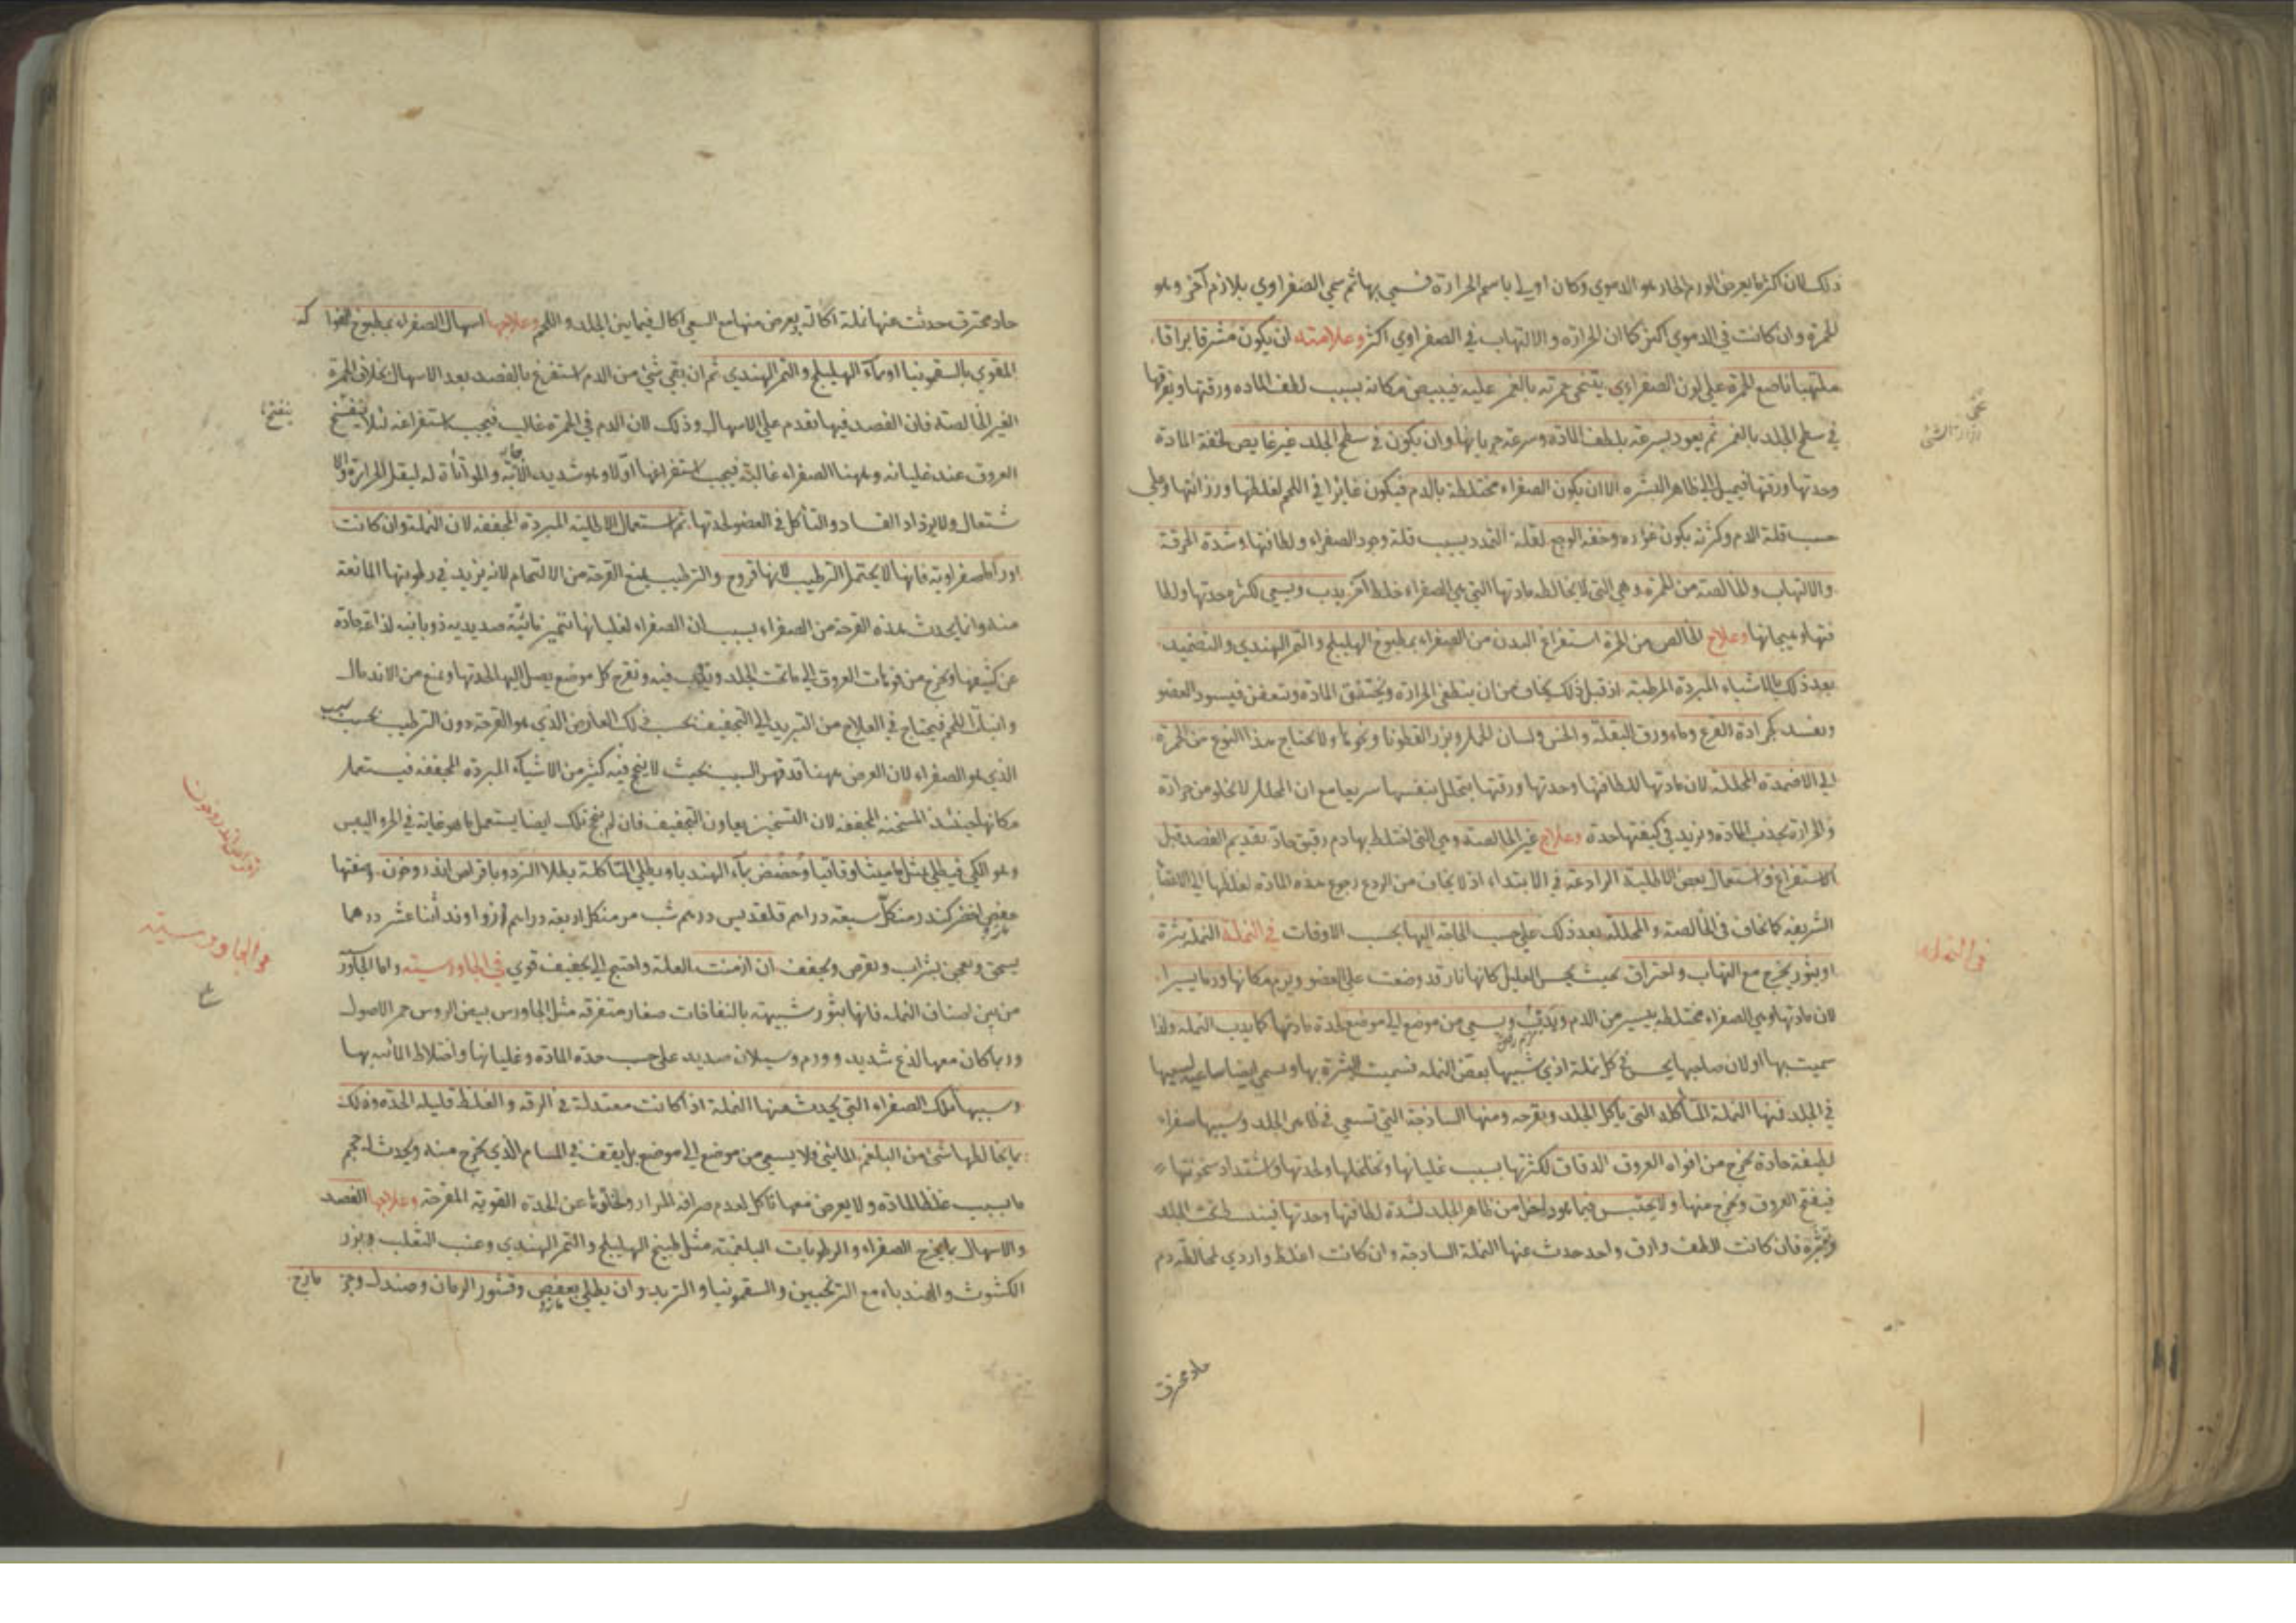 ذلك لان اكثر ما يعرض الورم الحار هو الدموي وكان اولى باسم الحرارة فسمي بها ثم سمي الصفراوي بلازم آخر وهو
الحمرة وان كانت في الدموي اكثر كما ان الحرارة والالتهاب في الصفراوي اكثر وعلامته ان يكون مشرقا براقا
ملتهبا ناصع الحمرة علي لون الصفراوي يتنحى حمرته بالغمز عليه فيبيض مكانه بسبب لطف المادة ورقتها وتفرقها
في سطح الجلد بالغمز ثم يعود بسرعة بلطف المادة وسرعة جريانها وان يكون في سطح الجلد غير غايص لخفة المادة
وحدتها ورقتها فيميل الي ظاهر البشرة الا ان يكون الصفراء مختلطة بالدم فيكون غايرا في اللحم لغلظها ورزانتها وعلي
حسب قلة الدم وكثرته يكون غوره وخفة الوجع لقلة التمدد بسبب قلة وجود الصفراء ولطافتها وشدة الحرقة
والالتهاب والخالصة من الحمرة وهي التي لا يخالط مادتها التي هي الصفراء خلط آخر يدب ويسعي لكثرة حدتها ولطا
فتها وهيجانها وعلاج الخالص من الحمرة استفراغ البدن من الصفراء بمطبوخ الهليلج والتمر الهندي والتضميد
بعد ذلك بالاشياء المبردة المرطبة اذ قبل ذلك يخاف من ان ينطفي الحرارة ويختنق المادة وتتعفن فيسود العضو
ويفسد بجرادة القرع وماء ورق البقلة والخس ولسان الحمل وبزر القطونا ونحوها ولا يحتاج هذا النوع من الحمرة
الي الاضمدة المحللة لان مادتها للطافتها وحدتها ورقتها يتحلل بنفسها سريعا مع ان المحلل لا يخلو من حرارة
والحرارة يجذب المادة ويزيد في كيفيتها حدة وعلاج غير الخالصة وهي التي اختلط بها دم رقيق حاد تقديم الفصد قبل
الاستفراغ واستعمال بعض الاطلية الرادعة في الابتداء اذ لا يخاف من الردع رجوع هذه المادة لغلظها الي الاعضاء
الشريفة كما يخاف في الخالصة والمحللة بعد ذلك علي حسب الحاجة اليها بحسب الاوقات في النملة النملة بثرة
او بثور يخرج مع التهاب واحتراق بحيث يحس العليل كانها نار قد وضعت علي العضو ويرم مكانها ورما يسيرا
لان مادتها وهي الصفراء مختلطة بيسير من الدم ويدب ويسعي من موضع الي موضع لحدة مادتها كما يدب النملة ولذا
سميت بها او لان صاحبها يحس في كل نملة اذي شبيها بعض النملة فسميت البثرة بها ويسمي ايضا ساعية لسعيها
في الجلد فمنها النملة المتأكلة التي يأكل الجلد ويقرحه ومنها الساذجة التي تسعي في ظاهر الجلد وسببها صفراء
لطيفة حادة يخرج من افواه العروق الدقاق لكثرتها بسبب غليانها وتخلخلها ولحدتها واشتداد سخونتها
فيفتح العروق ويخرج منها ولا يحتبس فيما هو داخل من ظاهر الجلد لشدة لطافتها وحدتها فينبسط تحت الجلد
ويبثره فان كانت الطف وارق واحد حدث عنها النملة الساذجة وان كانت اغلظ واردي لمخالطة دم
حاد محترق
في النملة
حاد محترق حدثت عنها نملة اكالة يعرض منها مع السعي اكال فيما بين الجلد واللحم وعلاجها اسهال الصفراء بمطبوخ الفواكه
المقوي بالسقمونيا او بماء الهليلج والتمر الهندي ثم ان بقي شئ من الدم استفرغ بالفصد بعد الاسهال بخلاف الحمرة
الغير الخالصة فان الفصد فيها تقدم علي الاسهال وذلك لان الدم في الحمرة غالب فيجب استفراغه لئلا يتفتح
العروق عند غليانه وههنا الصفراء غالبة فيجب استفراغها اولا وهو شديد الاثر والمواتاة له ليقل الحرارة والا
شتعال ولا يزداد الفساد والتأكل في العضو لحدتها ثم استعمال الاطلية المبردة المجففة لان النملة وان كانت
اوراما صفراوية فانها لا يحتمل الترطيب لانها قروح والترطيب يمنع القرحة من الالتحام لانه يزيد في رطوبتها المانعة
منه وانما يحدث هذه القرحة من الصفراء بسبب ان الصفراء لغليانها تتميز مائية صديدية ذوبانية لذاعة حادة
عن كثيفها ويخرج من فوهات العروق الي ما تحت الجلد وتدب فيه وتقرح كل موضع يصل اليها لحدتها وتمنع من الاندمال
وانبات اللحم فيحتاج في العلاج من التبريد الي التجفيف بحسب ذلك العارض الذي هو القرحة دون الترطيب بحسب السبب
الذي هو الصفراء لان العرض ههنا قد قهر السبب بحيث لا ينجح فيه كثير من الاشياء المبردة المجففة فيستعمل
مكانها حينئذ المسخنة المجففة لان التسخين يعاون التجفيف فان لم ينجح تلك ايضا يستعمل ما هو غاية في الحر واليبس
وهو الكي فيطلي بمثل ماميثا وقاقيا وحضض بماء الهندبا ويطلي المتأكلة بطلاء الزرد وباقراص اندروخون وصفتها
عفص اخضر كندر من كل سبعة دراهم قلقديس درهم شب مر من كل اربعة دراهم زراوند اثنا عشر درهما
يسحق ويعجن بشراب ويقرص ويجفف ان ازمنت العلة واحتيج الي تجفيف قوي في الجاورسية واما الجاور
من بين اصناف النملة فانها بثور شبيهة بالنفاخات صغار متفرقة مثل الجاورس بيض الروس حمر الاصول
وربما كان معها لذع شديد وورم وسيلان صديد علي حسب حدة المادة وغليانها واختلاط المائية بها
وسببها تلك الصفراء التي يحدث عنها النملة اذا كانت معتدلة في الرقة والغلظ قليلة الحدة وذلك
بما يخالطها شئ من البلغم المائي فلا يسعي من موضع الي موضع بل يقف في المسام الذي يخرج منه ويحدث له حجم
ما بسبب غلظ المادة ولا يعرض معها تأكل لعدم صرافة المرار وخلوها عن الحدة القوية المقرحة وعلاجها الفصد
والاسهال بما يخرج الصفراء والرطوبات البلغمية مثل طبيخ الهليلج والتمر الهندي وعنب الثعلب وبزر
الكشوث والهندباء مع الترنجبين والسقمونيا والتربد وان يطلي بعفص وقشور الرمان وصندل